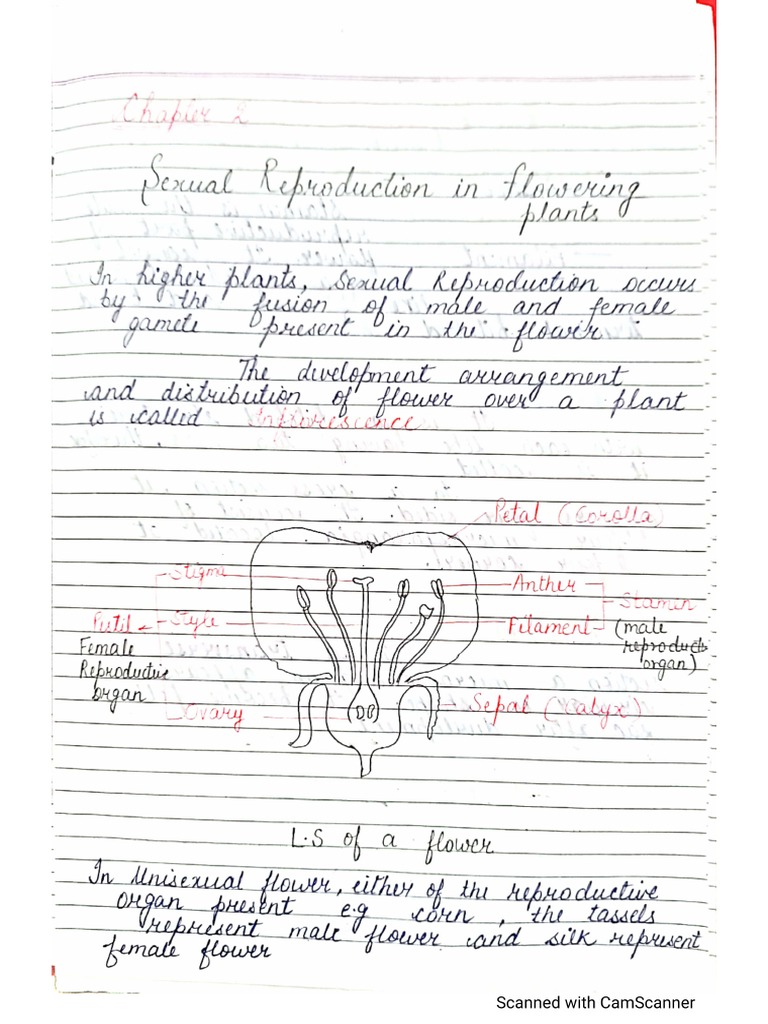 Chapter 2
Sexual Reproduction in flowering
plants
In higher plants, Sexual Reproduction occurs
by the fusion of male and female
gamete present in the flower.
The development arrangement
and distribution of flower over a plant
is called Inflorescence
Petal (Corolla)
Stigma
Anther
Stamen
Pistil
Style
Filament
(male
reproductive
organ)
Female
Reproductive
organ
Ovary
Sepal (Calyx)
L.S of a flower
In Unisexual flower, either of the reproductive
organ present e.g corn, the tassels
represent male flower and silk represent
female flower
Scanned with CamScanner